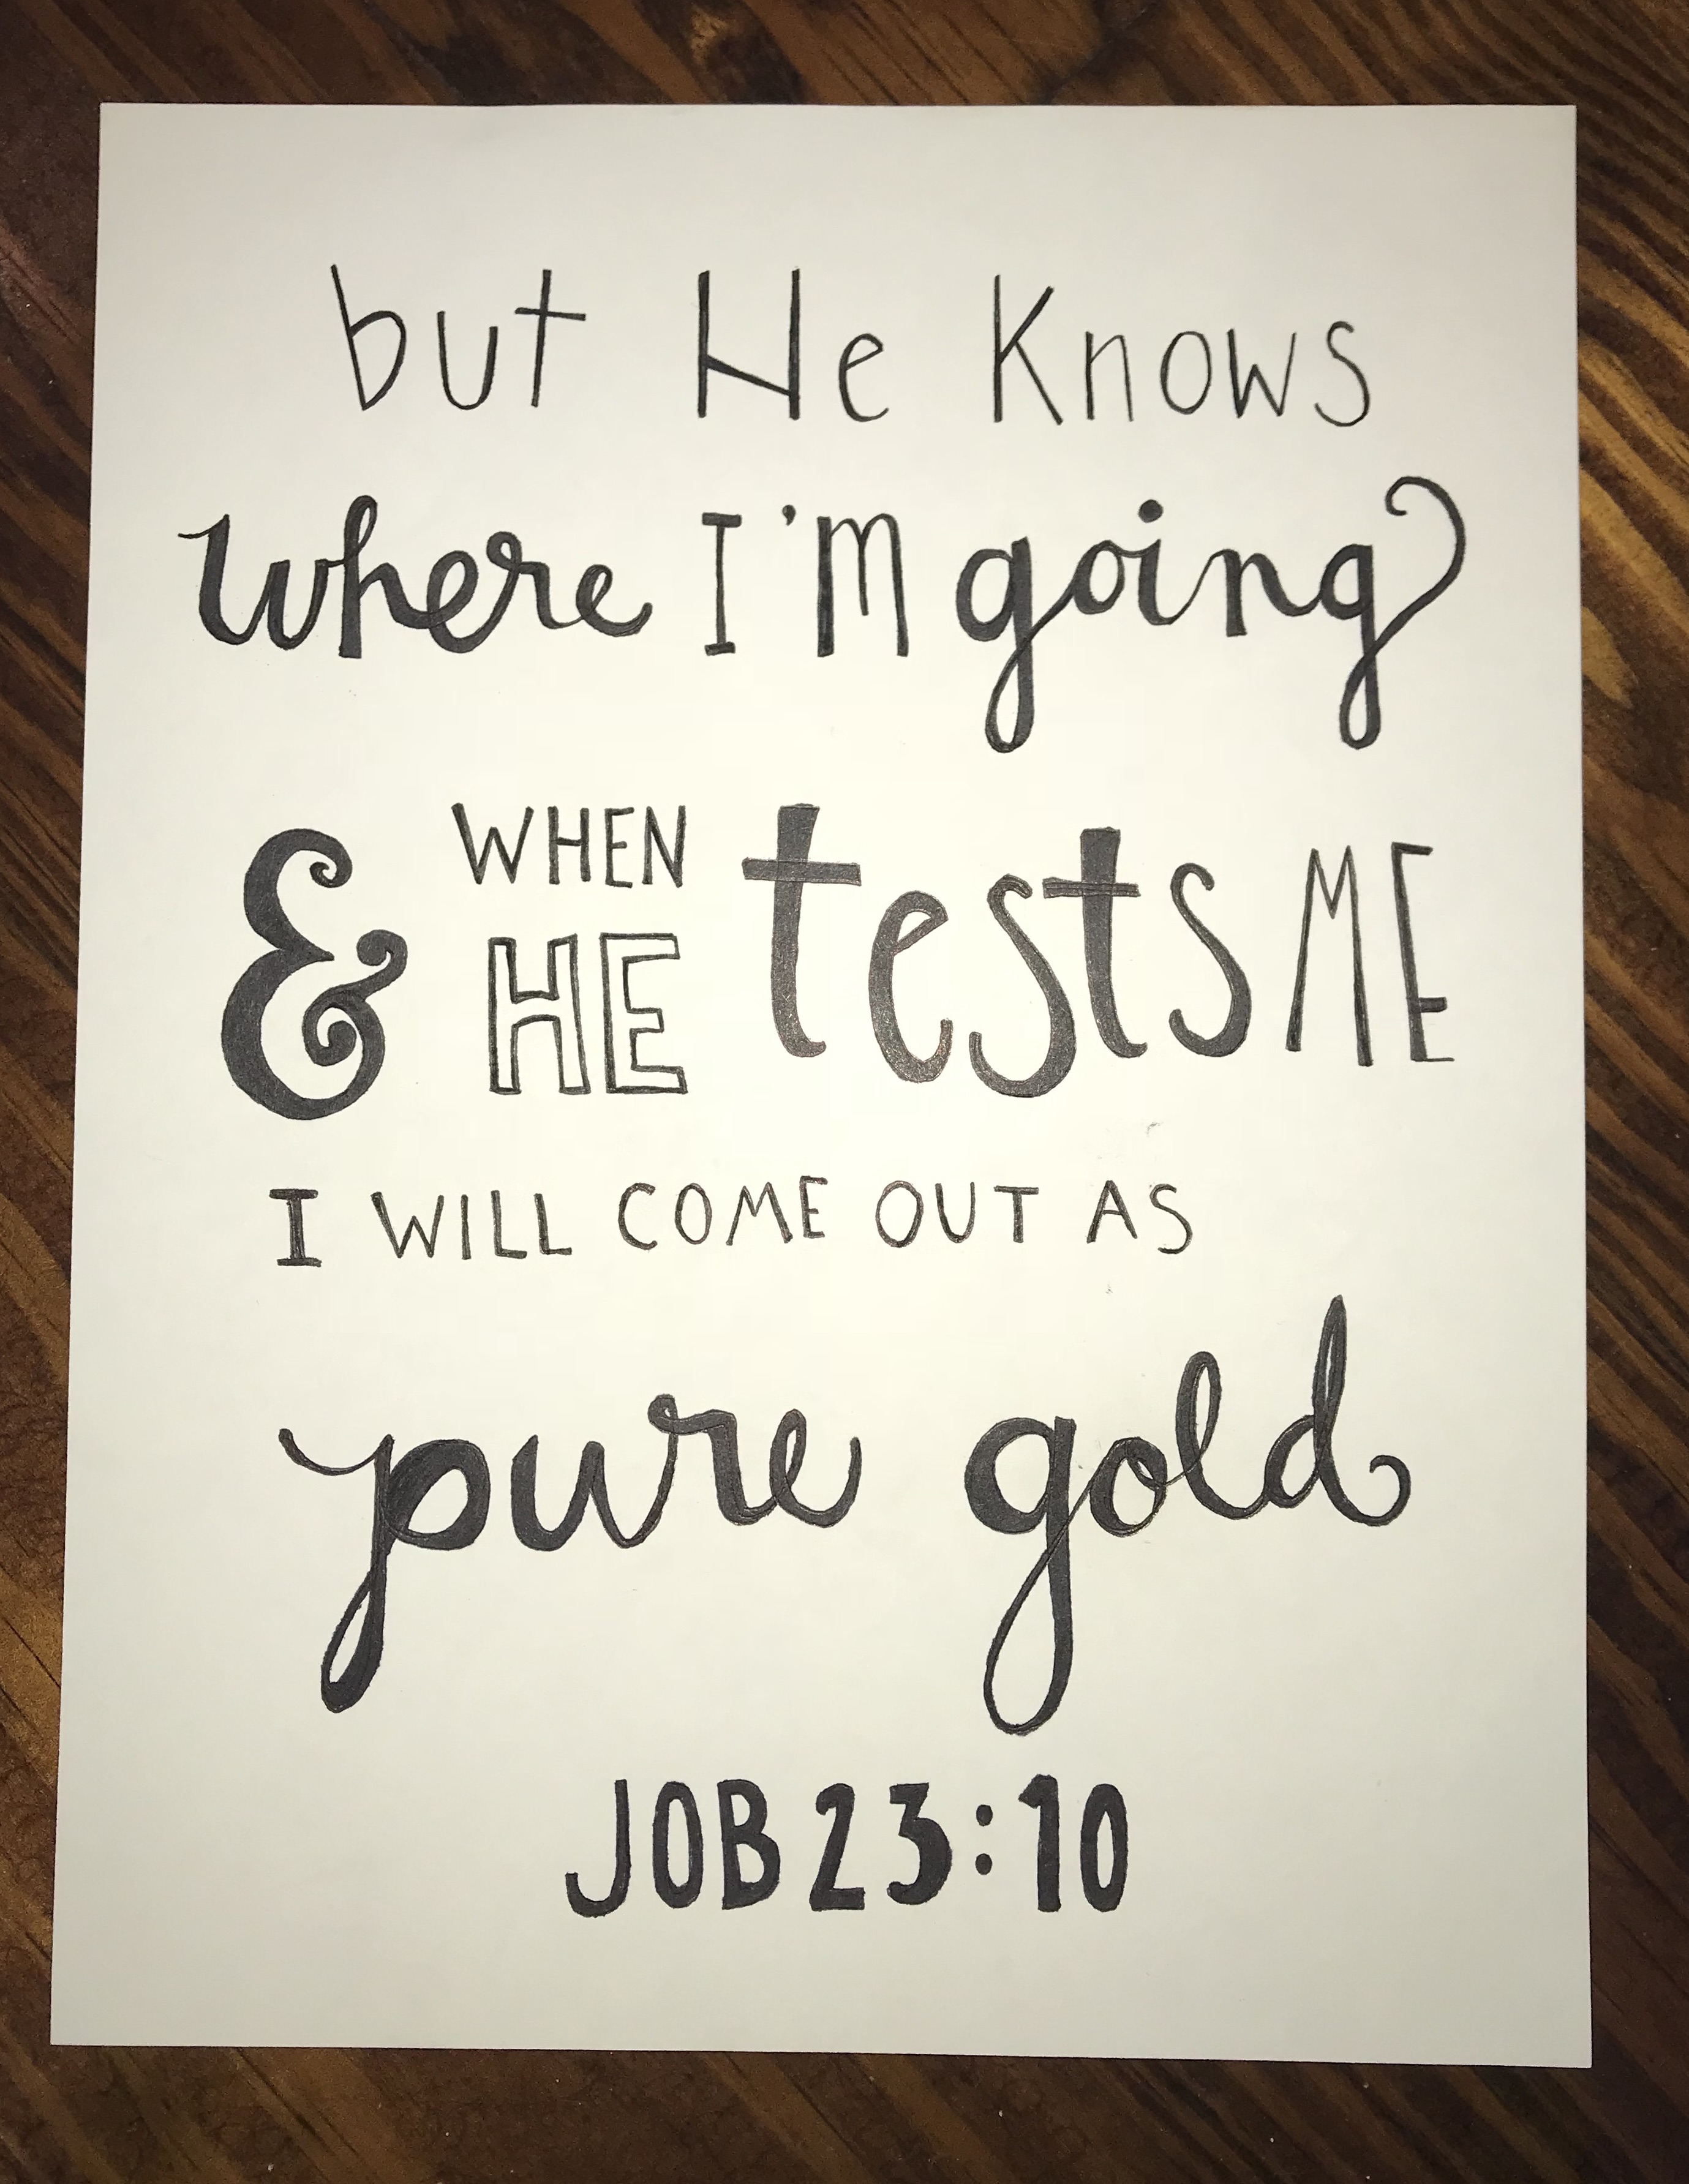 but He Knows
where I'm going
& WHEN HE tests ME
I WILL COME OUT AS
pure gold
JOB 23:10